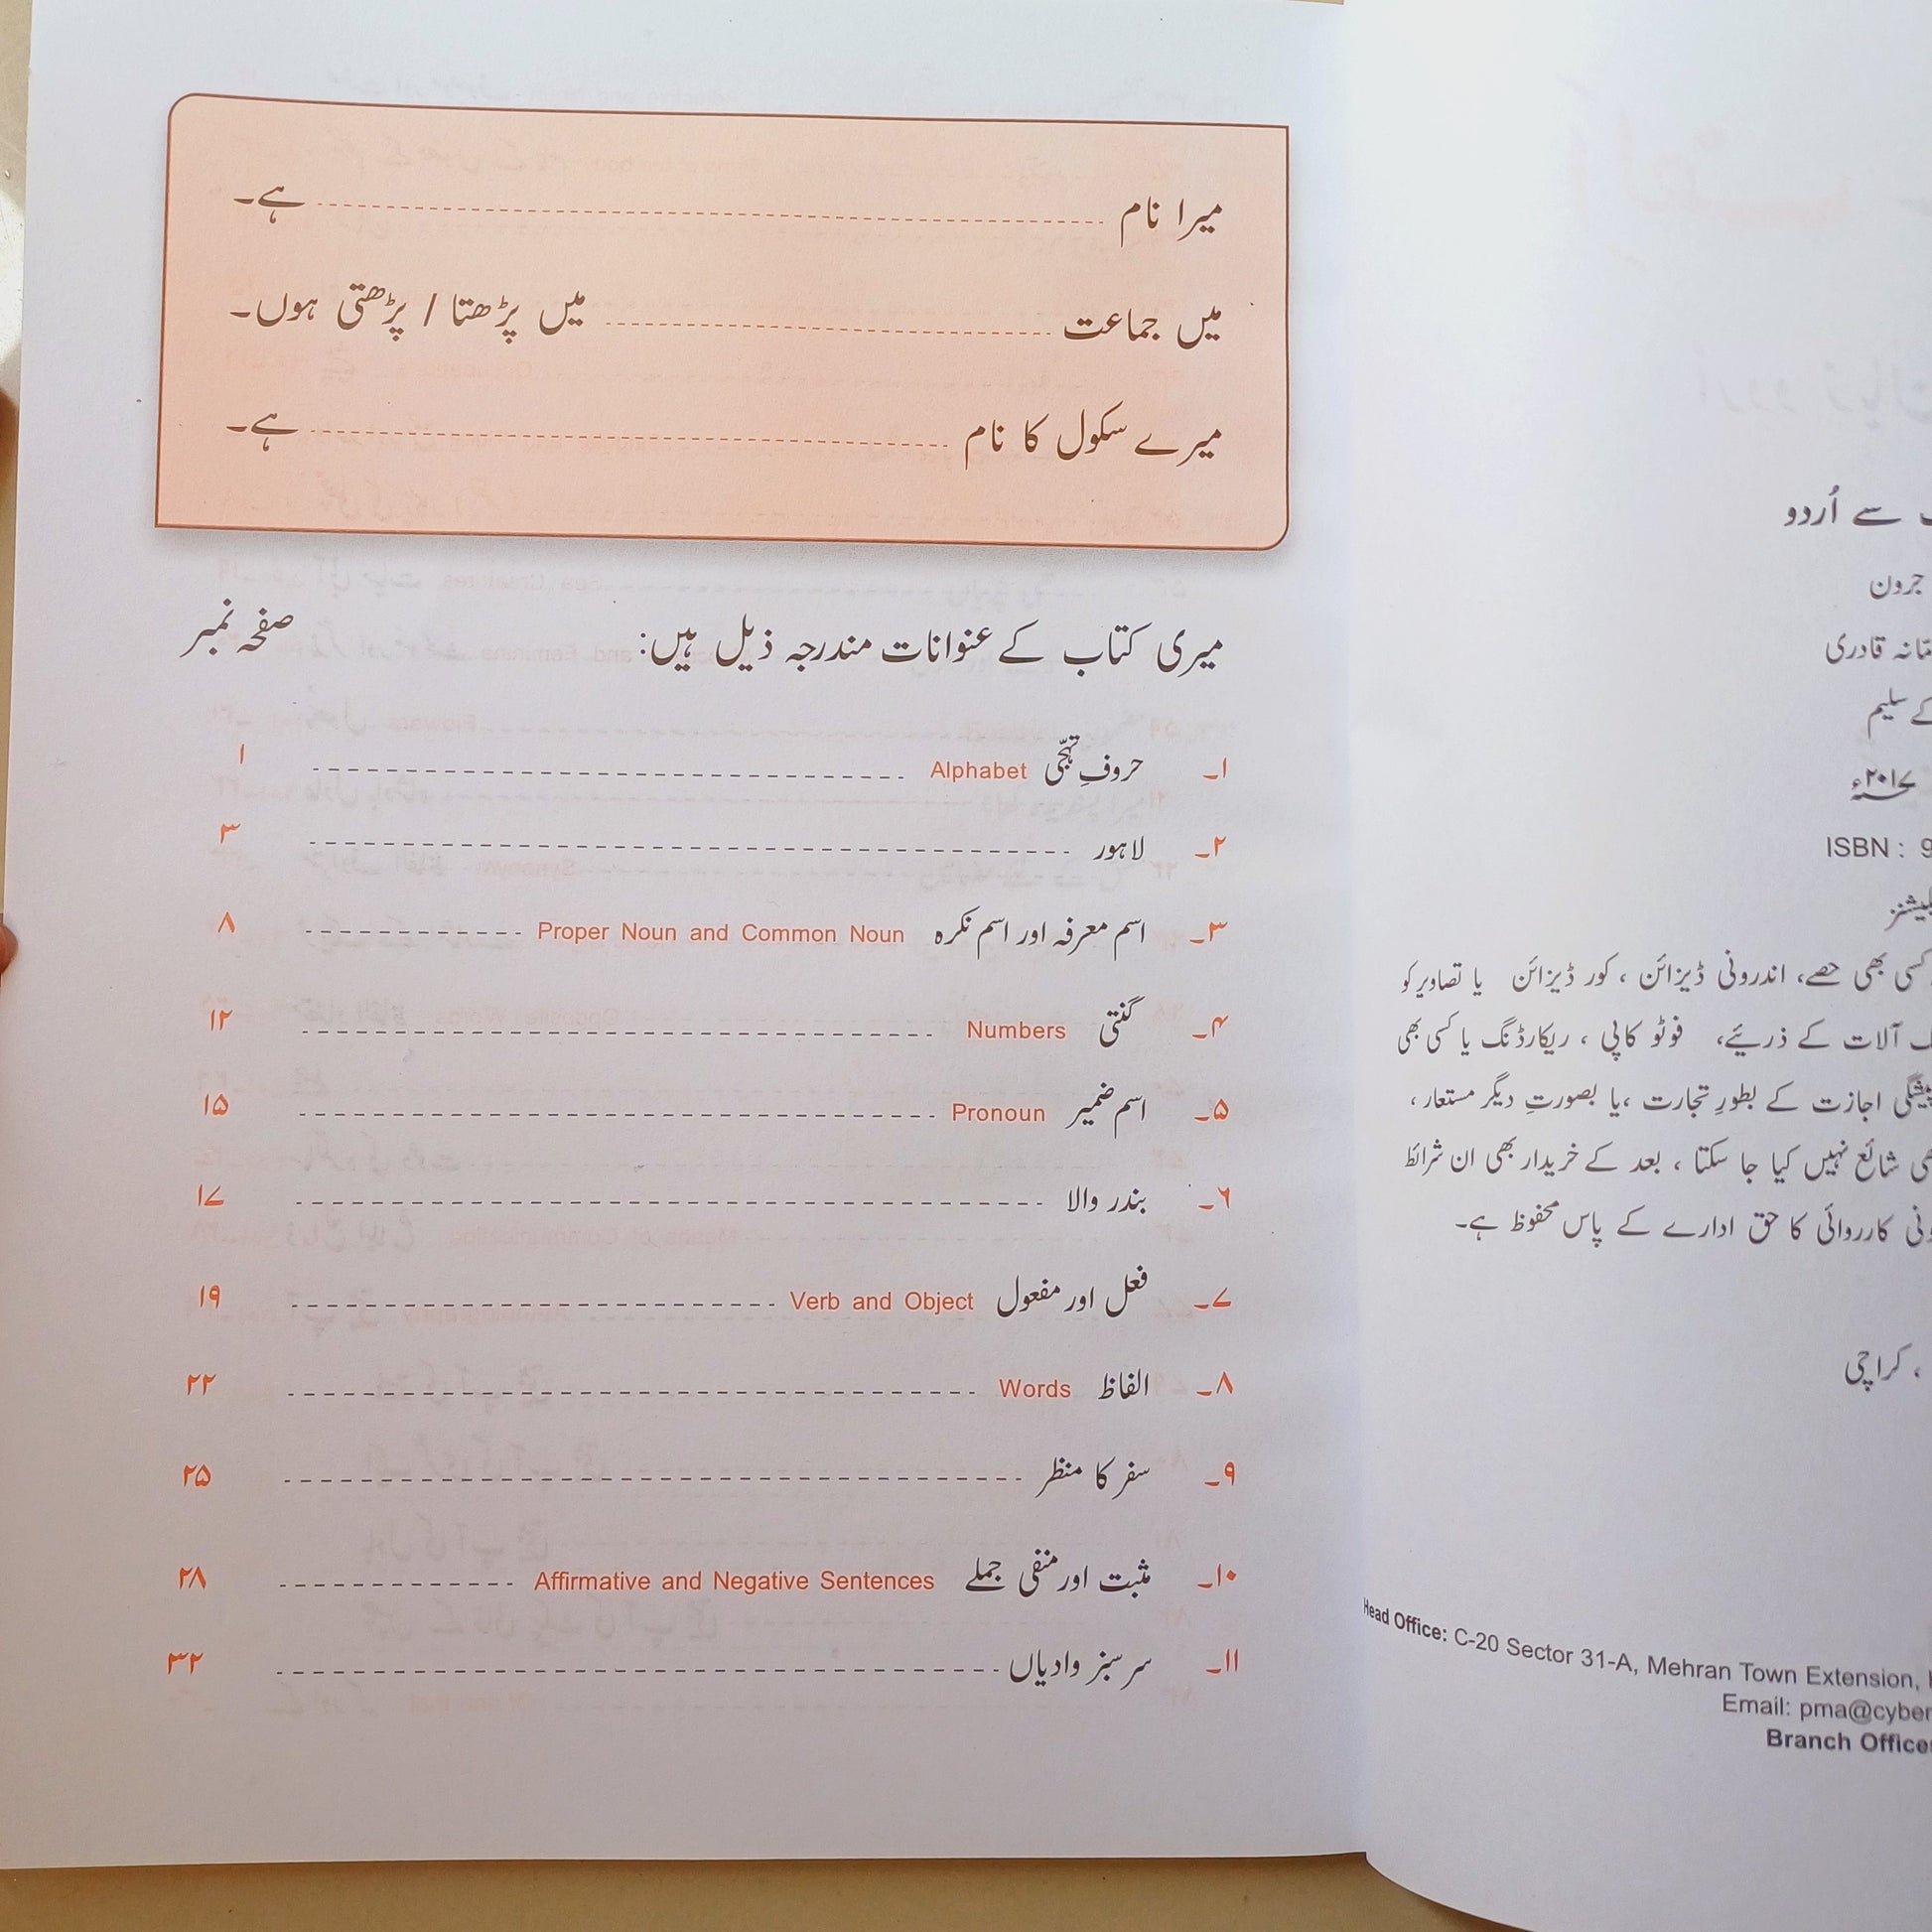 میرا نام ------------ ہے۔
میں جماعت ------------ میں پڑھتا / پڑھتی ہوں۔
میرے سکول کا نام ------------ ہے۔
میری کتاب کے عنوانات مندرجہ ذیل ہیں: صفحہ نمبر
۱۔ حروفِ تہجّی Alphabet ------------ ۱
۲۔ لاہور ------------ ۳
۳۔ اسم معرفہ اور اسم نکرہ Proper Noun and Common Noun ------------ ۸
۴۔ گنتی Numbers ------------ ۱۲
۵۔ اسم ضمیر Pronoun ------------ ۱۵
۶۔ بندر والا ------------ ۱۷
۷۔ فعل اور مفعول Verb and Object ------------ ۱۹
۸۔ الفاظ Words ------------ ۲۲
۹۔ سفر کا منظر ------------ ۲۵
۱۰۔ مثبت اور منفی جملے Affirmative and Negative Sentences ------------ ۲۸
۱۱۔ سر سبز وادیاں ------------ ۳۲
سے اُردو
جرون
قادری
سلیم
۲۰۱۷ء
ISBN : 9
کسی بھی حصے، اندرونی ڈیزائن ، کور ڈیزائن یا تصاویر کو
آلات کے ذریئے، فوٹو کاپی ، ریکارڈنگ یا کسی بھی
پیشگی اجازت کے بطورِ تجارت ،یا بصورتِ دیگر مستعار ،
شائع نہیں کیا جا سکتا ، بعد کے خریدار بھی ان شرائط
کارروائی کا حق ادارے کے پاس محفوظ ہے۔
، کراچی
Head Office: C-20 Sector 31-A, Mehran Town Extension,
Email: pma@cyber
Branch Office